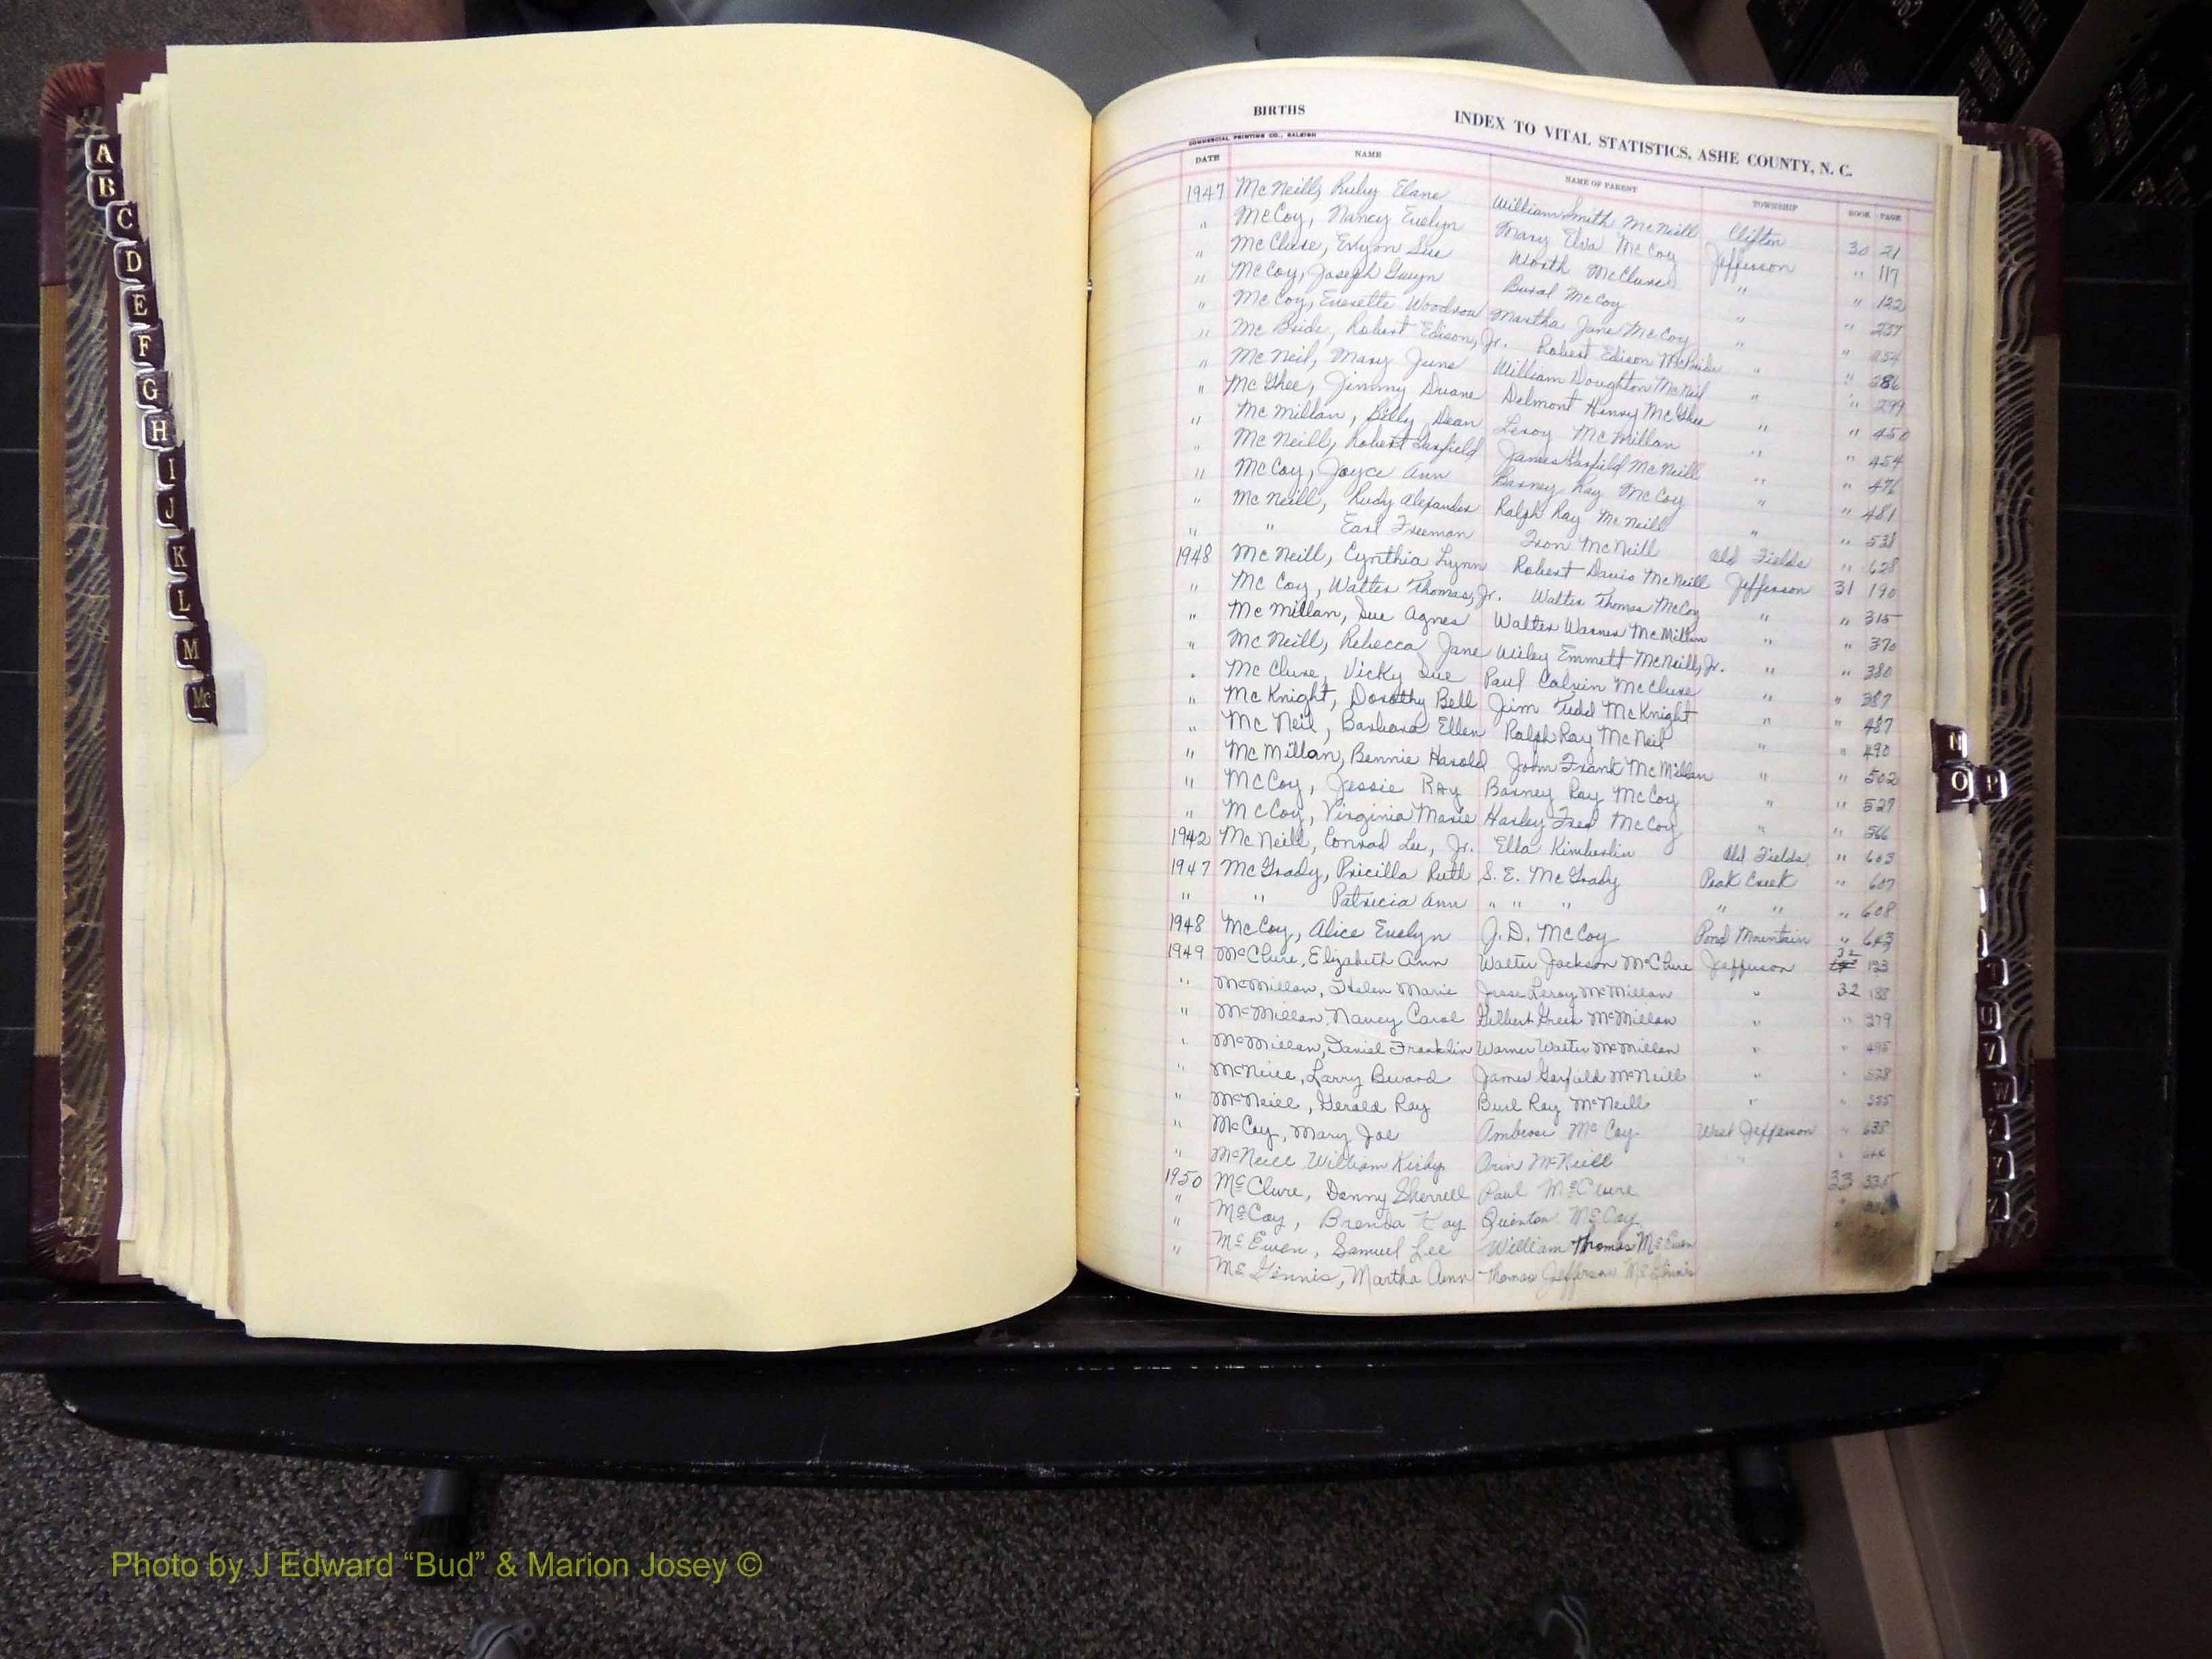 BIRTHS INDEX TO VITAL STATISTICS, ASHE COUNTY, N. C.
COMMERCIAL PRINTING CO., RALEIGH
DATE NAME NAME OF PARENT TOWNSHIP BOOK PAGE
1947 McNeill, Ruby Elane William Smith McNeill Clifton 30 21
" McCoy, Nancy Evelyn Mary Elva McCoy Jefferson " 117
" McClure, Sue Worth McClure " " 122
" McCoy, Joseph Gwyn Bural McCoy " " 237
" McCoy, Everette Woodrow Martha Jane McCoy " " 254
" McBride, Robert Edison, Jr. Robert Edison McBride " " 286
" McNeil, Mary June William Doughton McNeil " " 299
" McGhee, Jimmy Duane Delmont Henry McGhee " " 450
" McMillan, Billy Dean Leroy McMillan " " 454
" McNeill, Robert Garfield James Garfield McNeill " " 476
" McCoy, Joyce Ann Barney Ray McCoy " " 481
" McNeill, Rudy Alexander Ralph Ray McNeill " " 538
" " Earl Freeman McNeill Old Fields " 628
1948 McNeill, Cynthia Lynn Robert Davis McNeill Jefferson 31 190
" McCoy, Walter Thomas, Jr. Walter Thomas McCoy " " 315
" McMillan, Sue Agnes Walter Warner McMillan " " 370
" McNeill, Rebecca Jane Wiley Emmett McNeill, Jr. " " 380
" McClure, Vicky Sue Paul Calvin McClure " " 387
" McKnight, Dorothy Bell Jim Todd McKnight " " 487
" McNeil, Barbara Ellen Ralph Ray McNeil " " 490
" McMillan, Bennie Harold John Frank McMillan " " 502
" McCoy, Jessie Ray Barney Ray McCoy " " 527
" McCoy, Virginia Marie Harley Fred McCoy " " 566
1942 McNeill, Conrad Lee, Jr. Ella Kimberlin Old Fields " 603
1947 McGrady, Pricilla Ruth S. E. McGrady Peak Creek " 607
" " Patricia Ann " " " " " " 608
1948 McCoy, Alice Evelyn J. D. McCoy Pond Mountain " 643
1949 McClure, Elizabeth Ann Walter Jackson McClure Jefferson 32 133
" McMillan, Helen Marie Jesse Leroy McMillan " 32 188
" McMillan, Nancy Carol Gilbert Green McMillan " " 279
" McMillan, Daniel Franklin Warner Walter McMillan " " 495
" McNeill, Larry James Garfield McNeill " " 528
" McNeill, Gerald Ray Burl Ray McNeill " " 535
" McCoy, Mary Joe Ambrose McCoy West Jefferson " 638
" McNeill William Kirby McNeill " "
1950 McClure, Danny Sherrell Paul McClure 33 335
" McCoy, Brenda Kay Quinton McCoy "
" McEwen, Samuel Lee William Thomas McEwen "
" McGinnis, Martha Ann Thomas Jefferson McGinnis
A
B
C
D
E
F
G
H
I
J
K
L
M
Mc
N
O P
V
W
Photo by J Edward “Bud” & Marion Josey ©